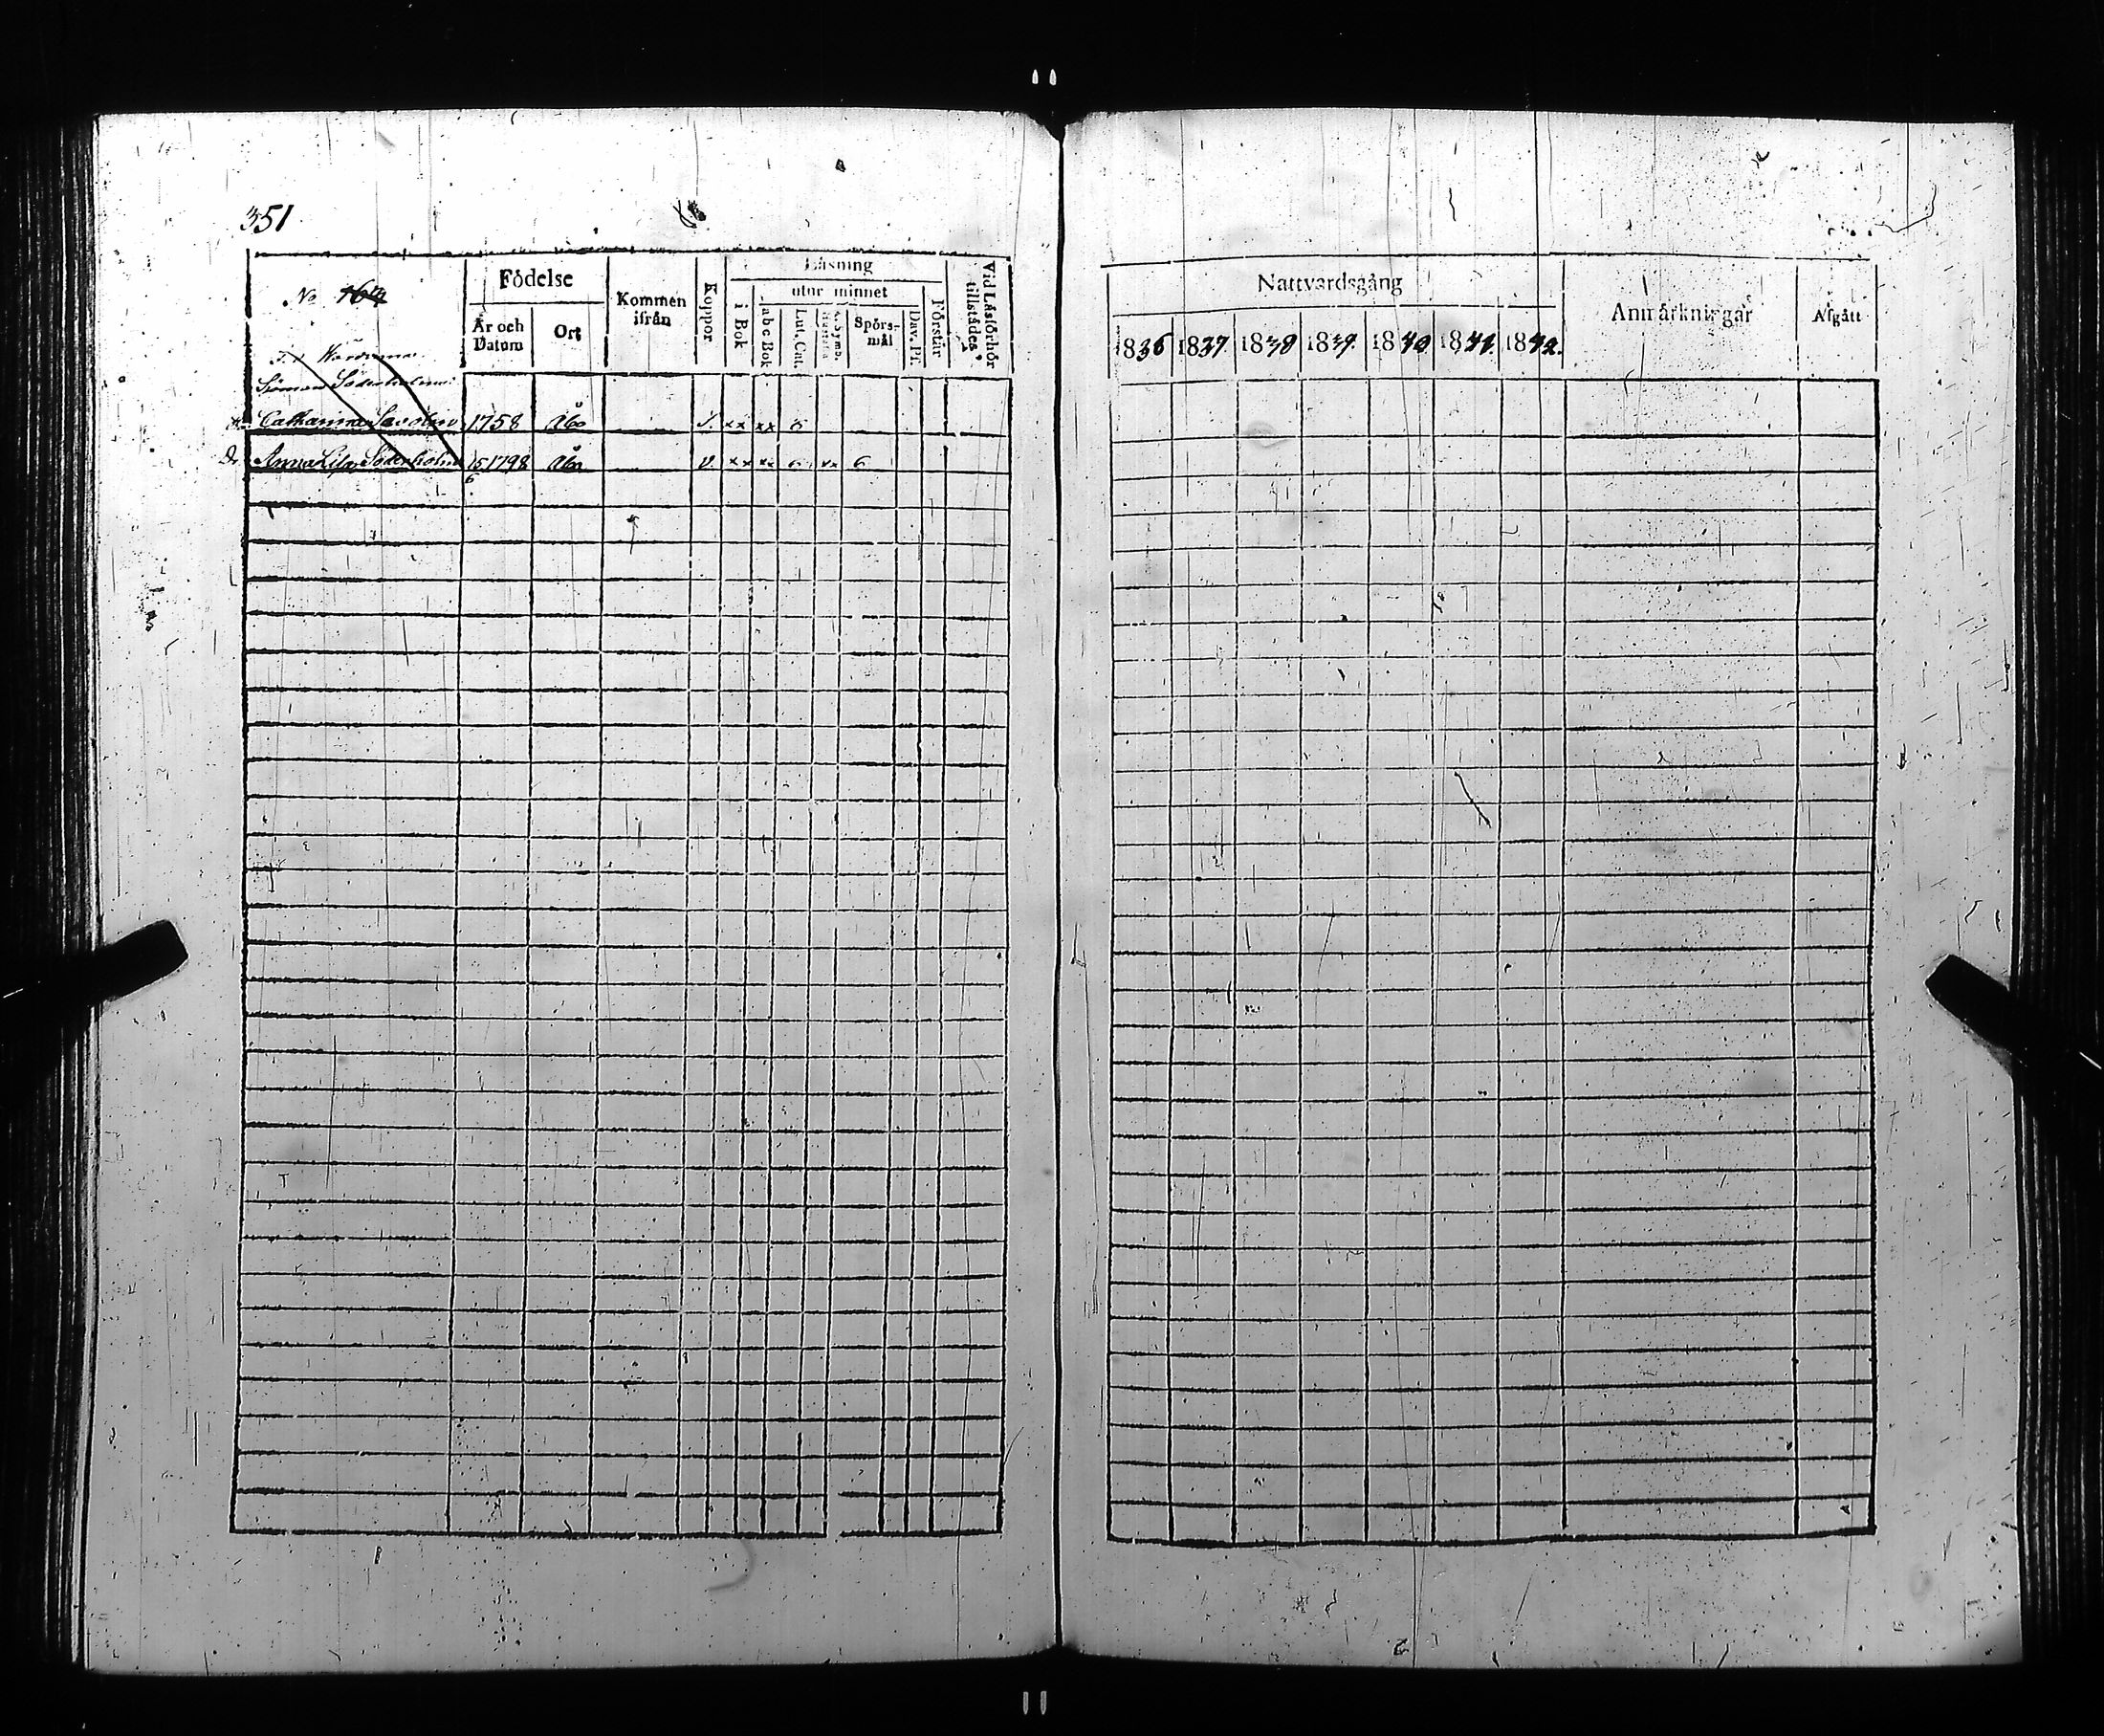 351
No 164
Födelse
Kommen ifrån
Koppor
Läsning
utur minnet
Förstår
Vid Läsförhör tillstädes
År och Datum
Ort
i Bok
abc Bok
Lut. Cat.
Spörs-mål
Dav. Ps.
Simon Söderholms
Catharina 1758 Åbo xx xx
Dr. Anna Lisa Söderholm 15/6 1798 Åbo v. xx xx 6 xx 6
Nattvardsgång
Anmärkningar
Afgått
1836 1837. 1838 1839. 1840 1841. 1842.